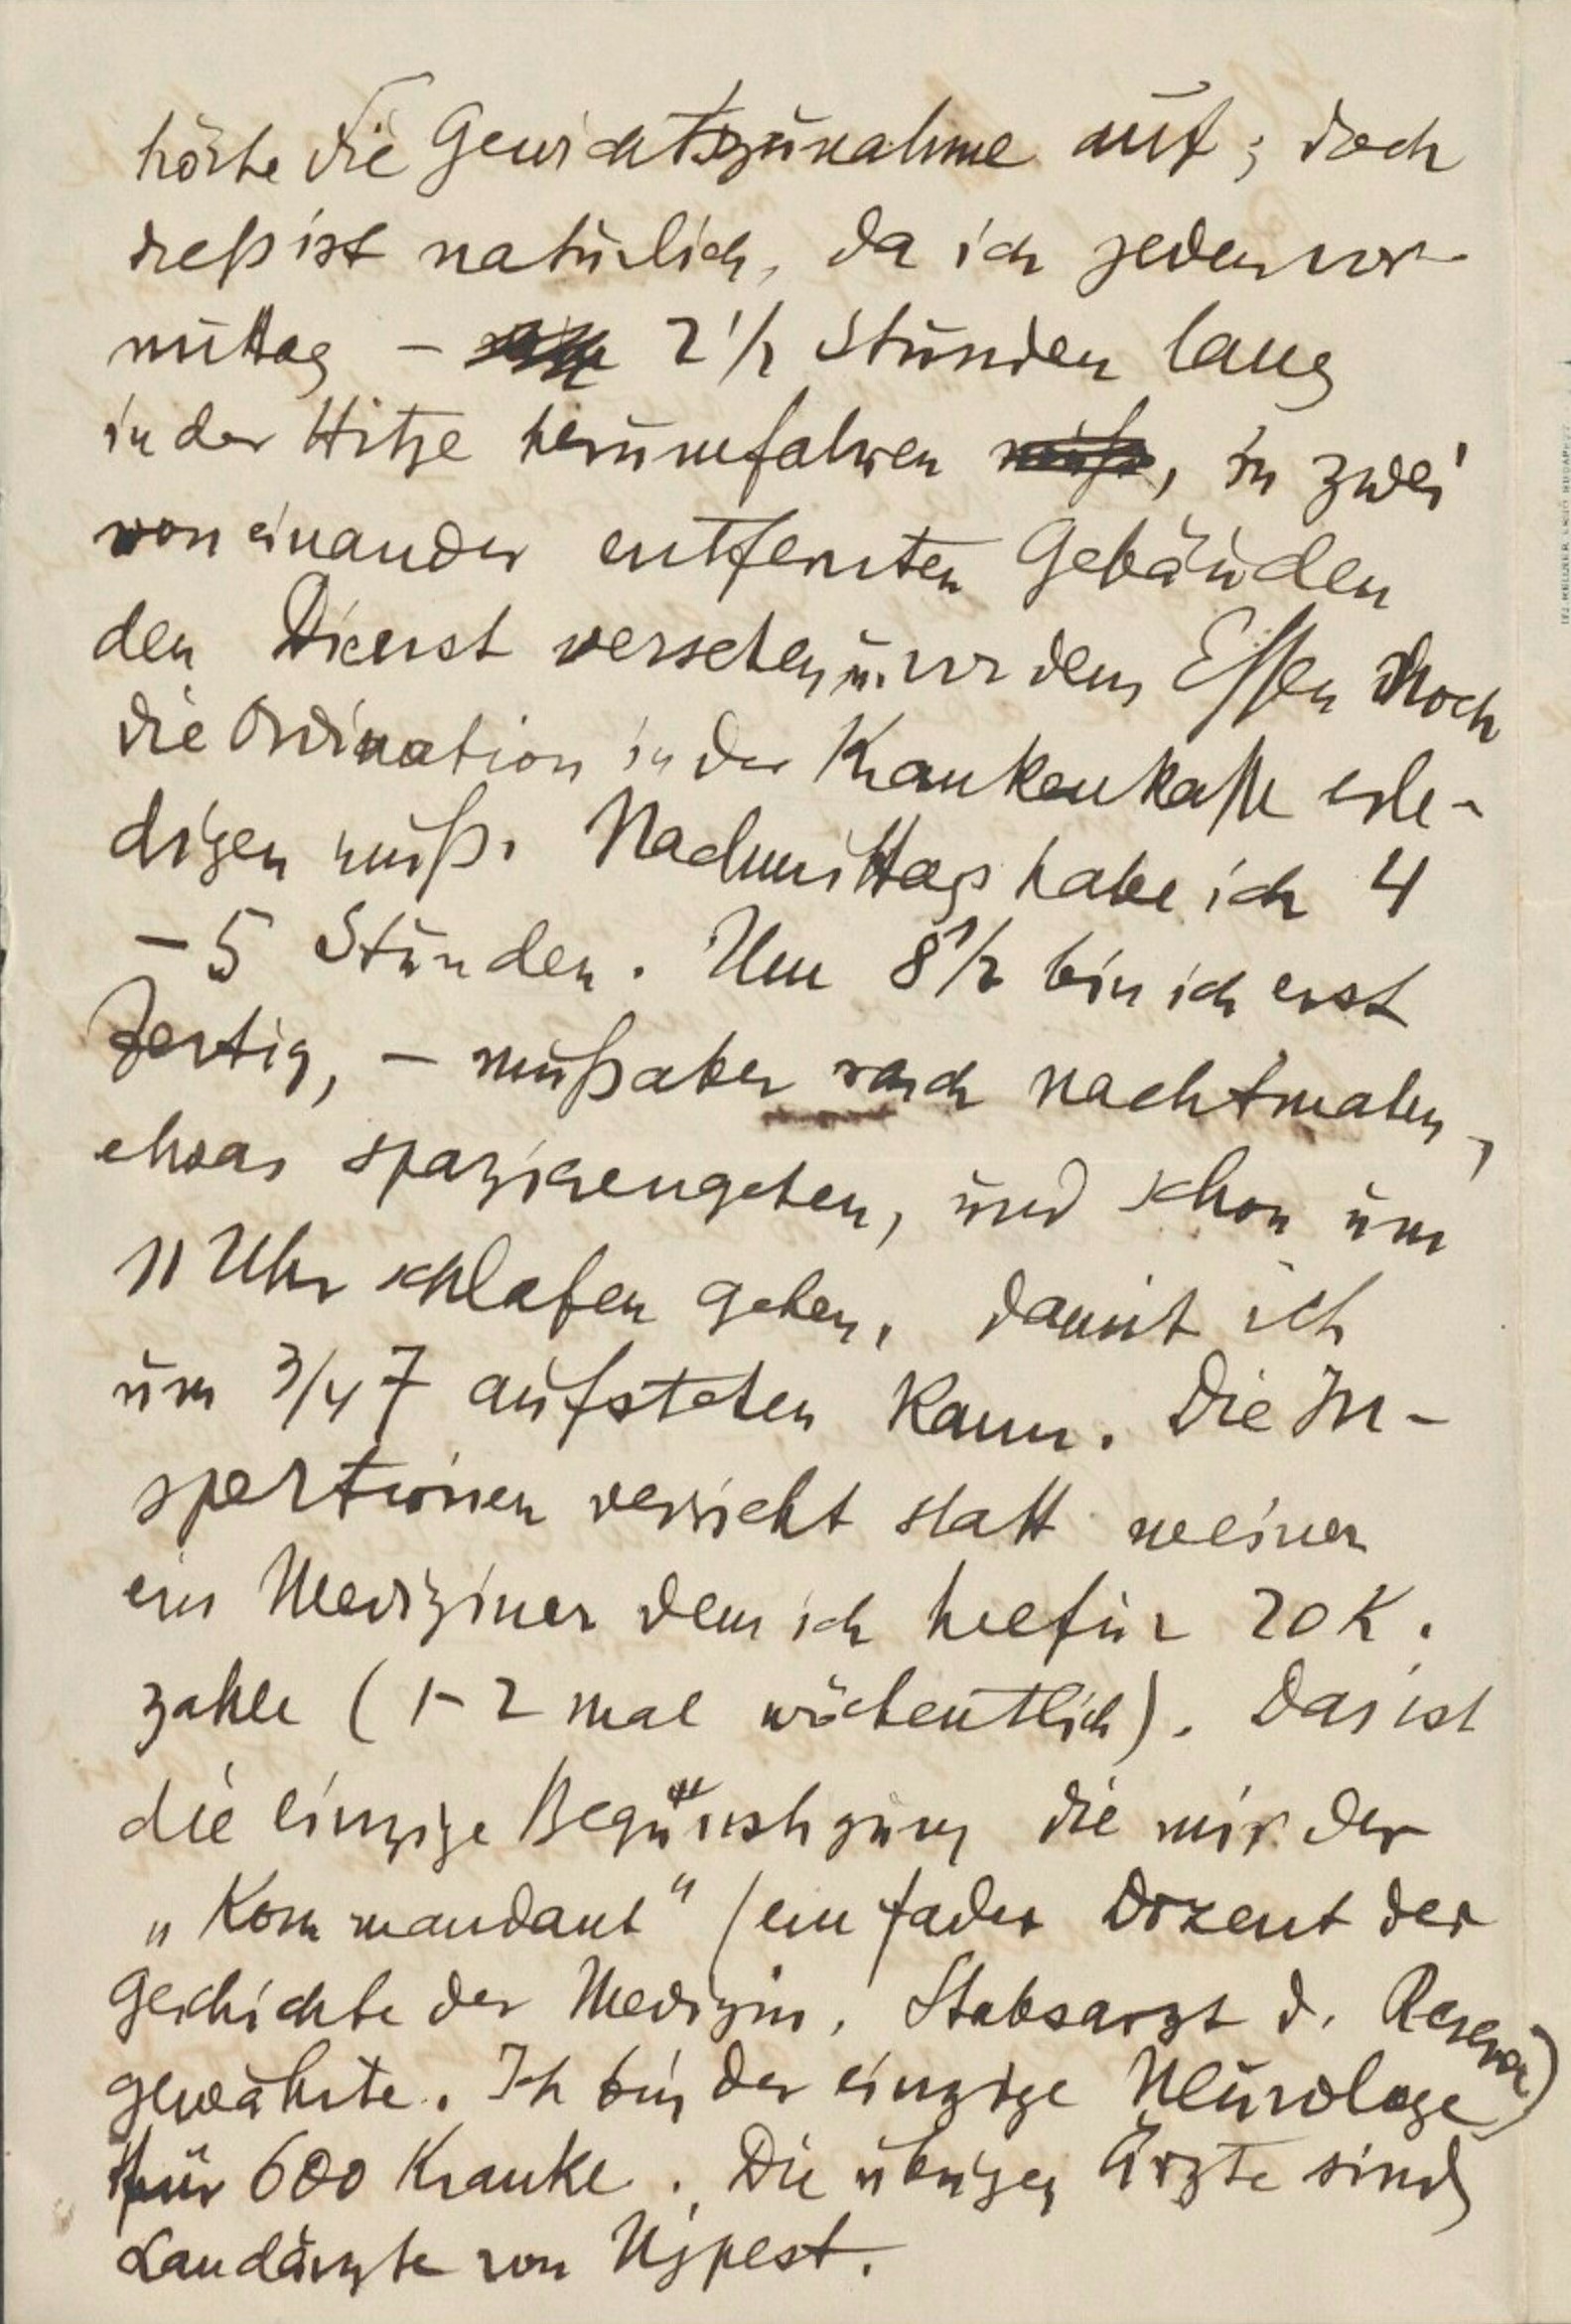 hörte die Gewichtszunahme auf; doch
dieß ist natürlich, da ich jeden vor-
mittag – 2 1/2 Stunden lang
in der Hitze herumfahren muß, in zwei
von einander entfernten Gebäuden
den Dienst versehen u. vor dem Essen noch
die Ordination in der Krankenkasse erle-
digen muß. Nachmittags habe ich 4
– 5 Stunden. Um 8 1/2 bin ich erst
fertig, – muß aber noch nachtmalen,
etwas spazierengehen, und schon um
11 Uhr schlafen gehen, damit ich
um 3/4 7 aufstehen kann. Die In-
spektionen verricht statt meiner
ein Mediziner dem ich hiefür 20 K.
zahle (1–2 mal wöchentlich). Das ist
die einzige Begünstigung die mir der
„Kommandant" (ein fader Dozent der
Geschichte der Medizin, Stabsarzt d. Reserve)
gewährte. Ich bin der einzige Neurologe
für 600 Kranke. Die übrigen Ärzte sind
Landärzte von Ujpest.